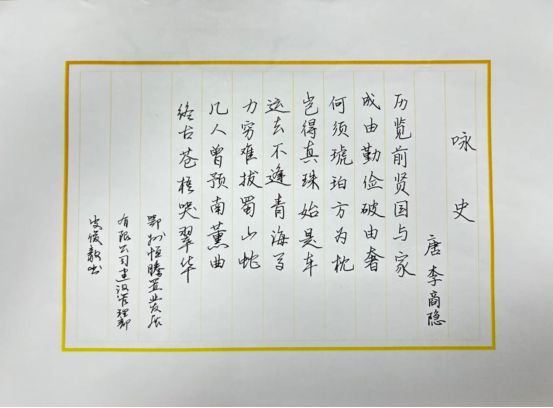 咏史
唐 李商隐
历览前贤国与家
成由勤俭破由奢
何须琥珀方为枕
岂得真珠始是车
运去不逢青海马
力穷难拔蜀山蛇
几人曾预南薰曲
终古苍梧哭翠华
鄂州恒腾置业发展
有限公司建设管理部